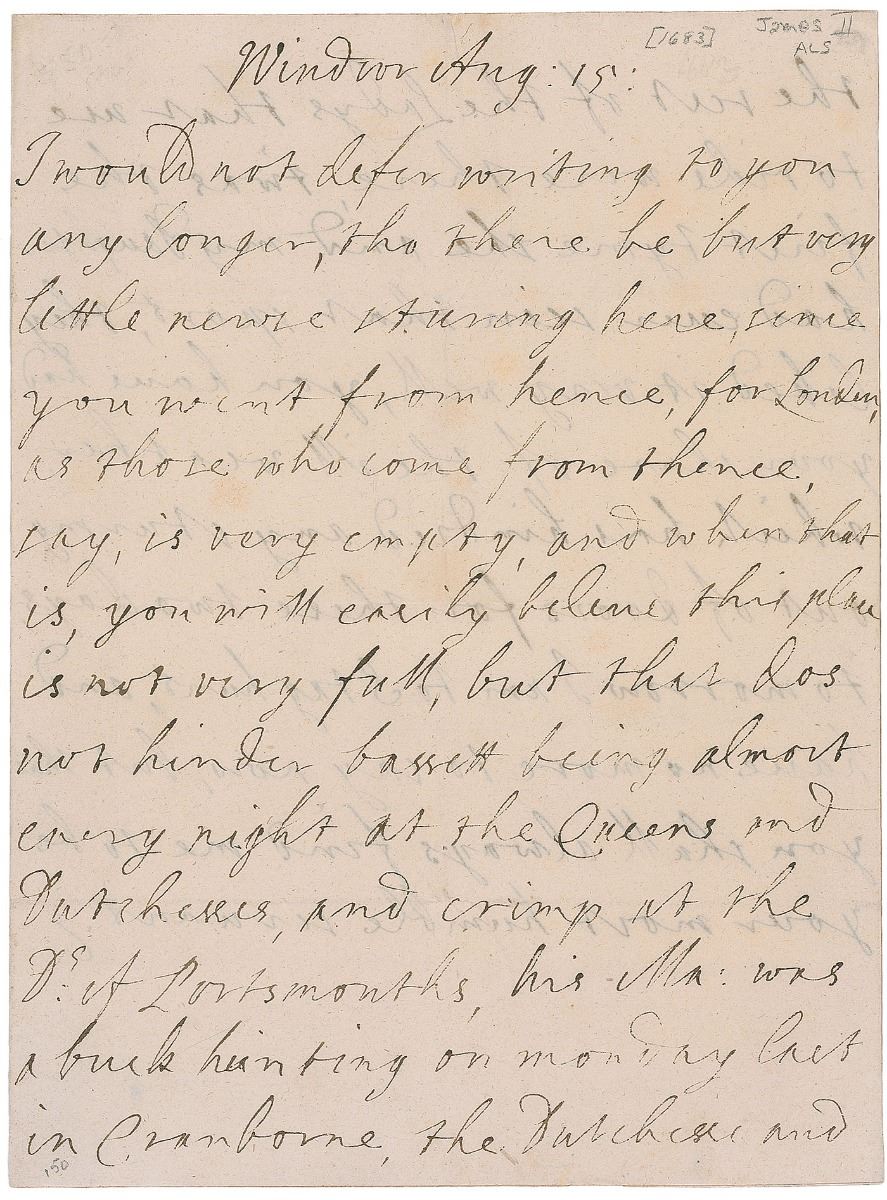 [1683]
James II
ALS
Windsor Aug: 15:
I would not defer writing to you
any longer, tho there be but very
little newse sturing here, since
you went from hence, for London,
as those who come from thence,
say, is very empty, and when that
is, you will easily beleve this place
is not very full, but that dos
not hinder bassett being almost
every night at the Queens and
Dutchesses, and crimp at the
Ds. of Portsmouths, his Ma: was
a buck hunting on monday last
in Cranborne, the Dutchesse and
150